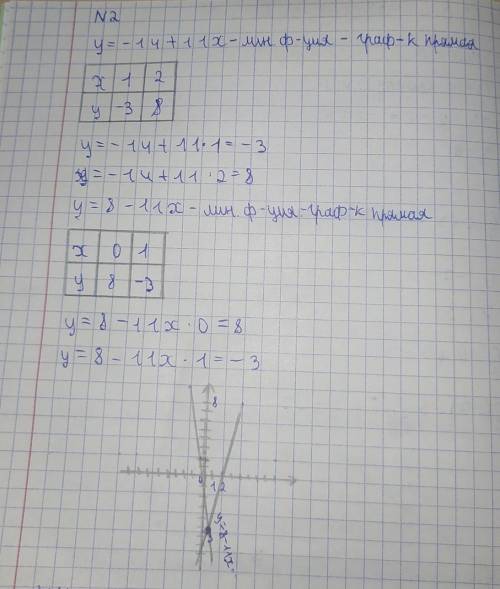 N2
y = -14 + 11x - лин. ф-ция - граф-к прямая
x 1 2
y -3 8
y = -14 + 11 · 1 = -3
y = -14 + 11 · 2 = 8
y = 8 - 11x - лин. ф-ция - граф-к прямая
x 0 1
y 8 -3
y = 8 - 11x · 0 = 8
y = 8 - 11x · 1 = -3
8
0 1 2
y=8-11x